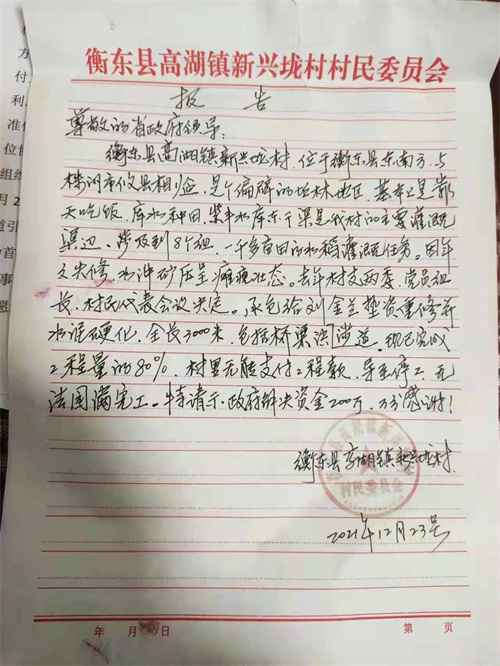 衡东县高湖镇新兴垅村村民委员会
报 告
尊敬的省政府领导:
衡东县高湖镇新兴垅村 位于衡东县东南方,与
株洲市攸县相临,是个偏僻的丘林地区,基本上是靠
天吃饭,库水种田,柴 水库东干渠是我村的主要灌溉
渠边,涉及到8个组,一千多亩田的水稻灌溉任务。因年
久失修,水冲砂压呈瘫痪状态。去年村支两委,党员组
长,村民代表会议决定。承包给刘金兰垫资重修并
水泥硬化,全长3000米,包括桥梁涵洞 道。现已完成
工程量的80%,村里无能支付工程款,导至停工,无
法圆满完工。特请示政府解决资金200万,万分感谢!
衡东县高湖镇新兴垅村
村民委员会
2021年12月23号
年 月 日
第 页
方
付
利
准
位
组织
月2
道引
首
事